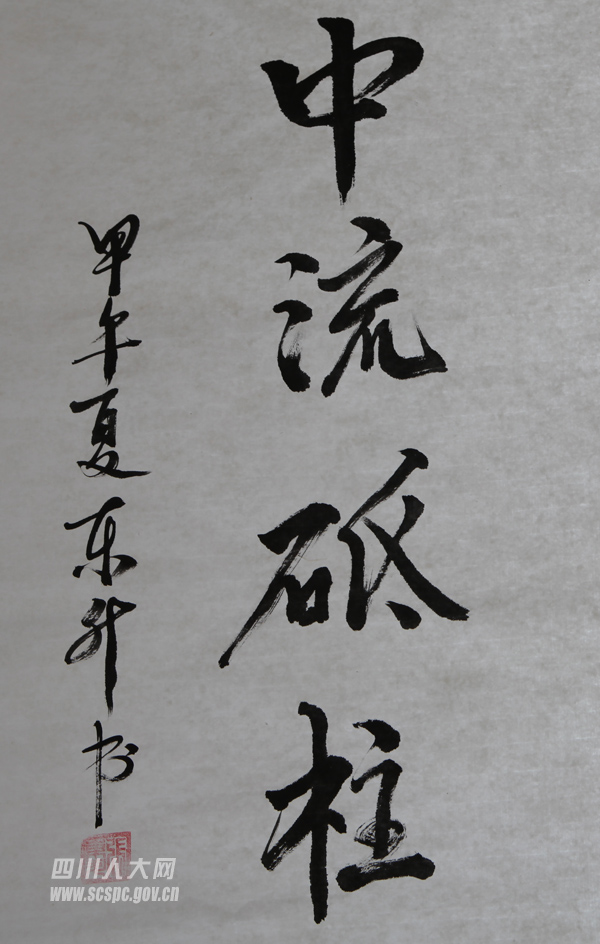 中流砥柱
甲午夏东升书
四川人大网
www.scspc.gov.cn